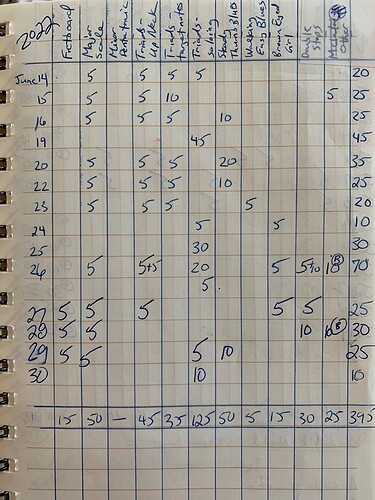 2022 Fretboard Major Scale Minor Pentatonic Triads Up Neck Triads - target notes Triads - soloing Steady Thumb Blues Walking Easy Blues Brown Eyed Girl Double Stops Other
June 14 5 5 5 5 20
15 5 5 10 5 25
16 5 5 5 10 25
19 45 45
20 5 5 5 20 35
22 5 5 5 10 25
23 5 5 5 5 20
24 5 5 10
25 30 30
26 5 5+5 20 5 5+10 10 B 70
5
27 5 5 5 5 5 25
28 5 5 10 10 B 30
29 5 5 5 10 25
30 10 10
15 50 — 45 35 125 50 5 15 30 25 395